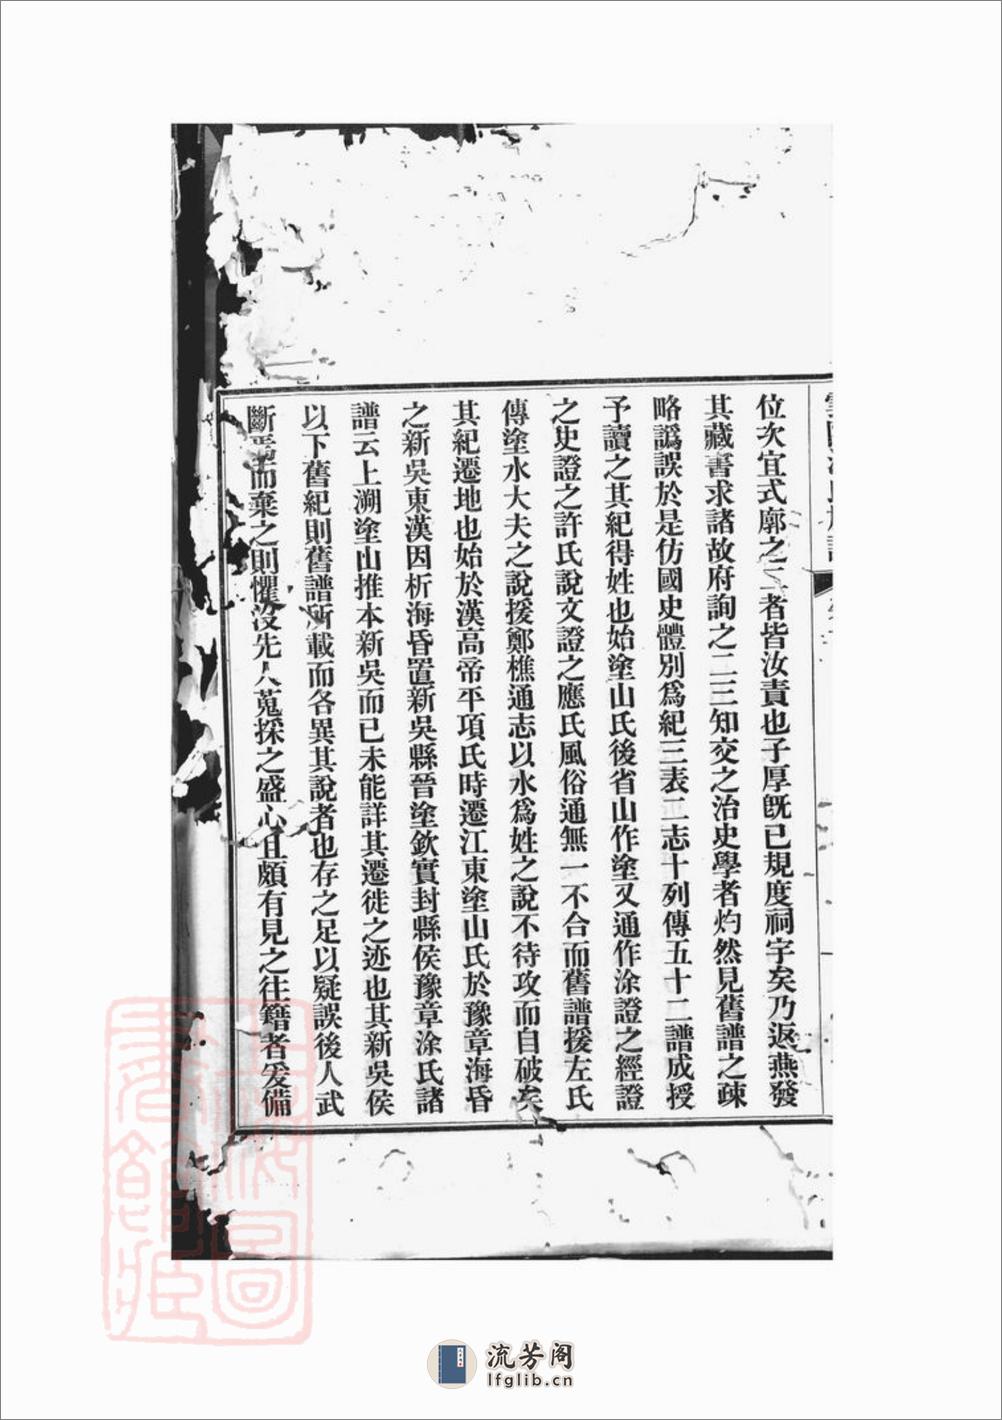 位次宜式廓之三者皆汝責也子厚既已規度祠宇矣乃返燕發
其藏書求諸故府詢之二三知交之治史學者灼然見舊譜之疎
略譌誤於是仿國史體別爲紀三表二志十列傳五十二譜成授
予讀之其紀得姓也始塗山氏後省山作塗又通作涂證之經證
之史證之許氏說文證之應氏風俗通無一不合而舊譜援左氏
傳塗水大夫之說援鄭樵通志以水爲姓之說不待攻而自破矣
其紀遷地也始於漢高帝平項氏時遷江東塗山氏於豫章海昏
之新吳東漢因析海昏置新吳縣晉塗欽實封縣侯豫章涂氏諸
譜云上溯塗山推本新吳而已未能詳其遷徙之迹也其新吳侯
以下舊紀則舊譜所載而各異其說者也存之足以疑誤後人武
斷焉而棄之則懼沒先人蒐採之盛心且頗有見之往籍者爰備
流芳阁
lfglib.cn